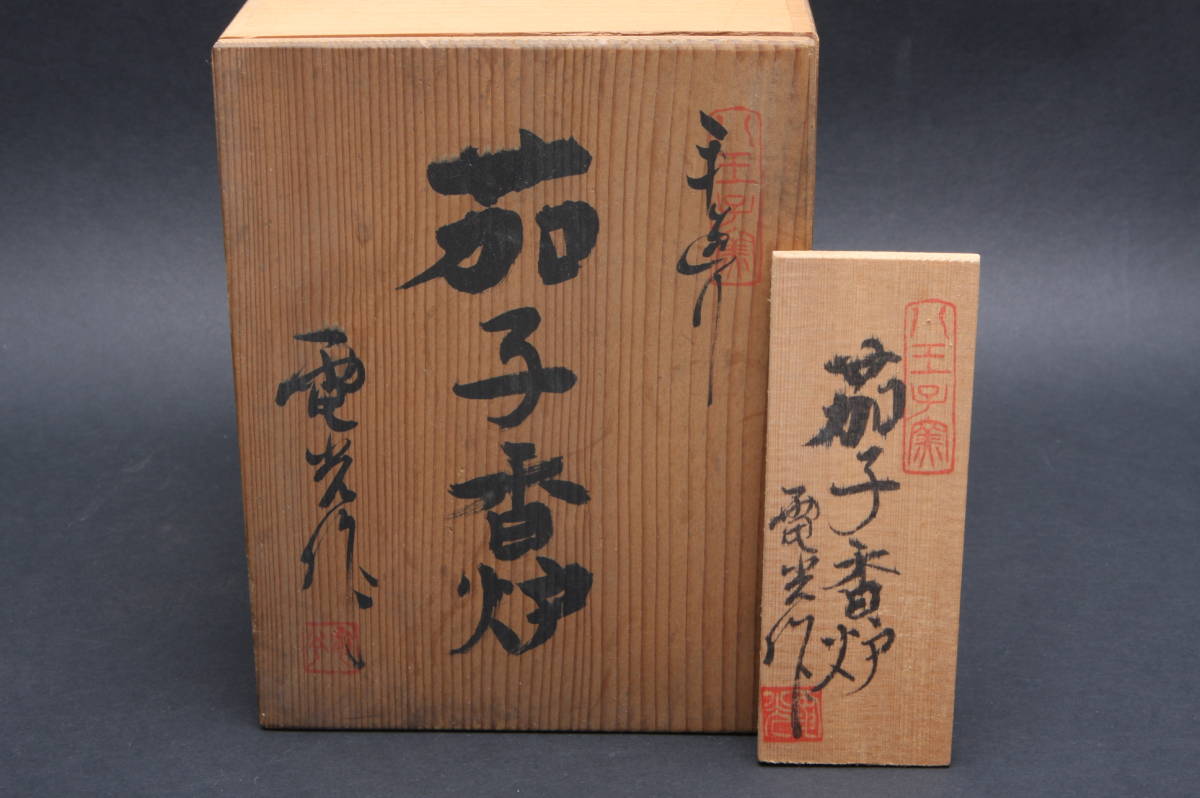 八王子窯
茄子香炉
電光作
八王子窯
茄子香炉
電光作
電光